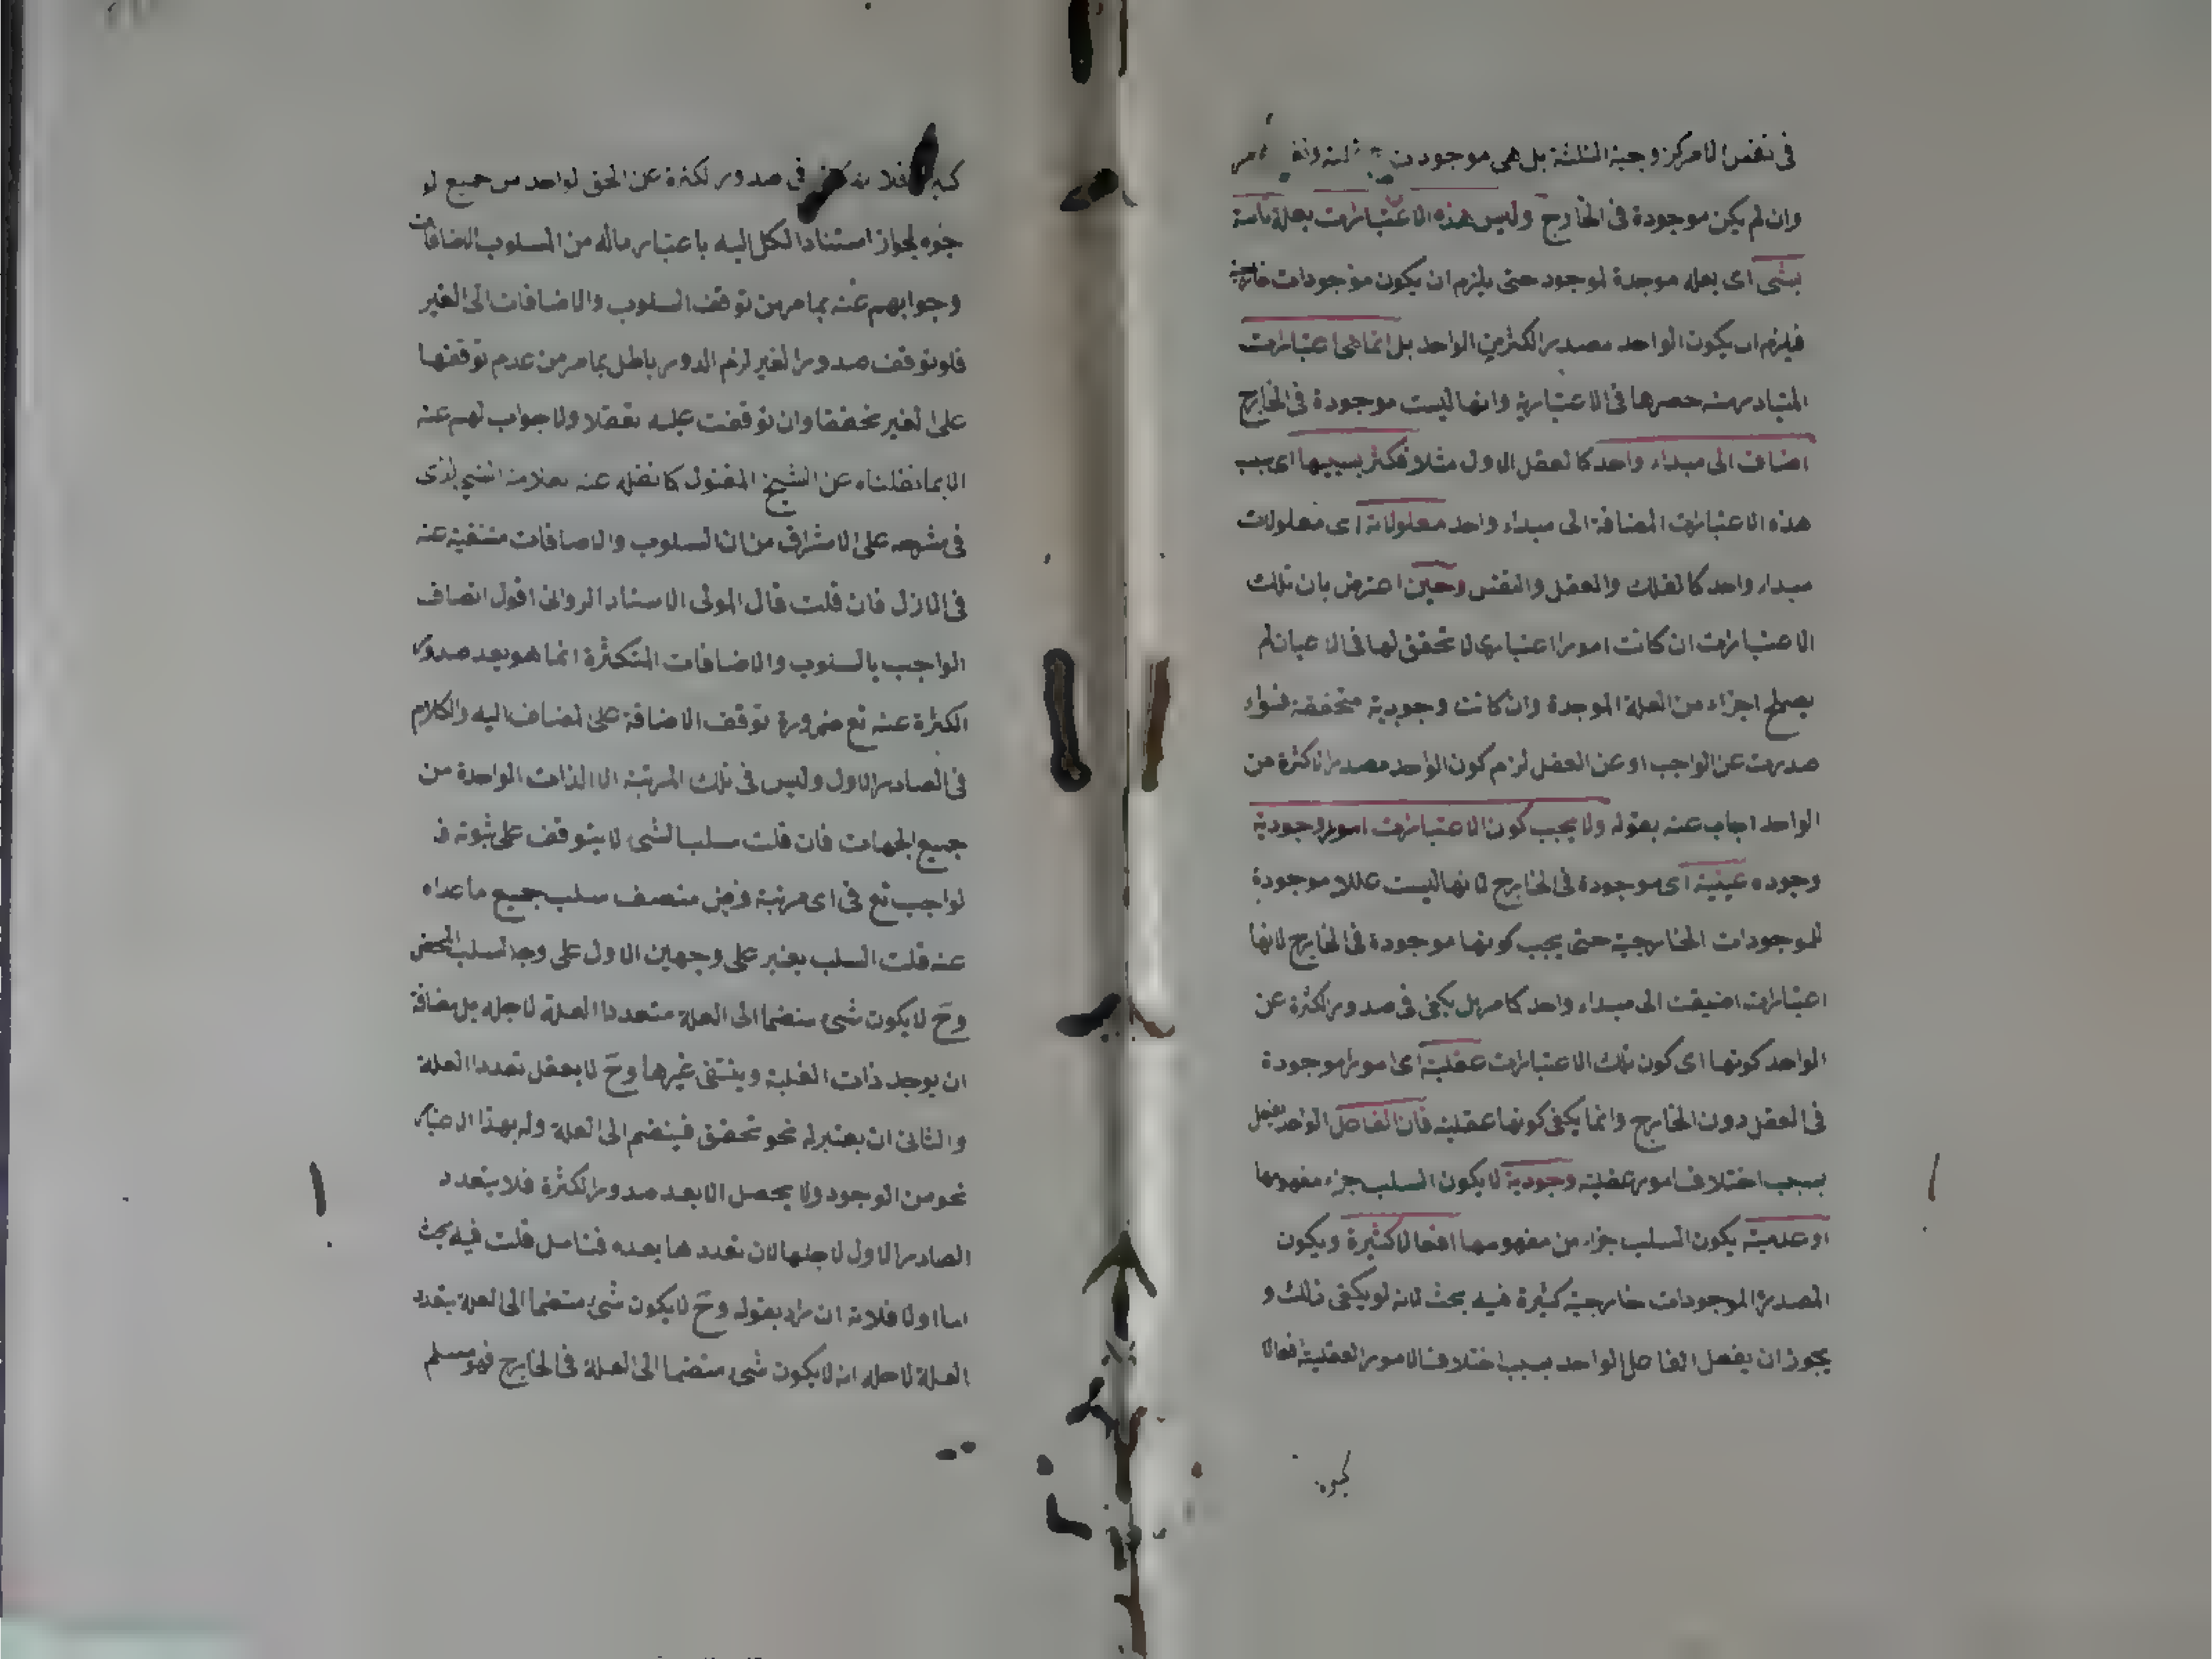 في نفس الامر كزوجية الثلثة بل هي موجودة
وان لم يكن موجودة في الخارج وليس هذه الاعتبارات بعلة تامة
بشئ اى بعلة موجدة لموجود حتى يلزم ان يكون موجودات خارجية
فيلزم ان يكون الواحد مصدرا لاكثر من الواحد بل انما هى اعتبارات
المتبادر منه حصرها فى الاعتبارية وانها ليست موجودة فى الخارج
اضاف الى مبداء واحد كالعقل الاول مثلا فكثر بسببها اى بسبب
هذه الاعتبارات المضافة الى مبداء واحد معلولاته اى معلولات
مبداء واحد كالفلك والعقل والنفس وحين اعترض بان تلك
الاعتبارات ان كانت امورا اعتبارية لا تحقق لها فى الاعيان لم
يصلح اجزاء من العلة الموجدة وان كانت وجودية متحققة فسواء
صدرت عن الواجب او عن العقل لزم كون الواحد مصدرا لاكثر من
الواحد اجاب عنه بقوله ولا يجب كون الاعتبارات امورا وجودية
وجوده عينية اى موجودة فى الخارج لانها ليست عللا موجودة
للموجودات الخارجية حتى يجب كونها موجودة فى الخارج لانها
اعتبارات اضيفت الى مبداء واحد كامر بل يكفى فى صدور الكثرة عن
الواحد كونها اى كون تلك الاعتبارات عقلية اى امورا موجودة
فى العقل دون الخارج وانما يكفى كونها عقلية فان الفاعل الواحد يفعل
بسبب اختلاف امور عقلية وجودية لا يكون السلب جزء مفهومها
او عدمية يكون السلب جزء من مفهومها افعالا كثيرة ويكون
المصدر الموجودات خارجية كثيرة فيه بحث لانه لو يكفى ذلك و
يجوز ان يفعل الفاعل الواحد بسبب اختلاف الامور العقلية افعالا
فى صدور لكثرة عن الحق لواحد من جميع لو
جوه لجواز استناد الكل اليه باعتبار ماله من السلوب الاضافات
وجوابهم عنه بما مر من توقف السلوب والاضافات الى الغير
فلو توقف صدور الغير لزم الدور باطل بما مر من عدم توقفها
على الغير تحققا وان توقفت عليه تعقلا ولا جواب لهم عنه
الا بما نقلناه عن الشيخ المقتول كما نقله عنه
فى شرحه على الاشراق من ان السلوب والاضافات منتفية عنه
فى الازل فان قلت قال المولى الاستاد الدوانى اقول اتصاف
الواجب بالسلوب والاضافات المتكثرة انما هو بعد صدور
الكثرة عنه تع ضرورة توقف الاضافة على المضاف اليه والكلام
فى الصادر الاول وليس فى تلك المرتبة الا الذات الواحدة من
جميع الجهات فان قلت سلب الشئ لا يتوقف على ثبوته ف
لواجب تع فى اى مرتبة فرض متصف سلب جميع ما عداه
عنه قلت السلب يعتبر على وجهين الاول على وجه السلب المحض
وح لا يكون شئ منضما الى العلة متعددا العلة لاجله بل مضافة
ان يوجد ذات العلية وينتفى غيرها وح لا يعقل تعدد العلة
والثانى ان يعتبر له نحو تحقق فينضم الى العلة وله بهذا الاعتبار
نحو من الوجود ولا يحصل الا بعد صدور الكثرة فلا يتعدد
الصادر الاول لاجلها لان تعددها بعده فتامل قلت فيه بحث
اما اولا فلانه ان راد بقوله وح لا يكون شئ منضما الى العلة يتعدد
العلة لاجله انه لا يكون شئ منضما الى العلة فى الخارج فهو مسلم